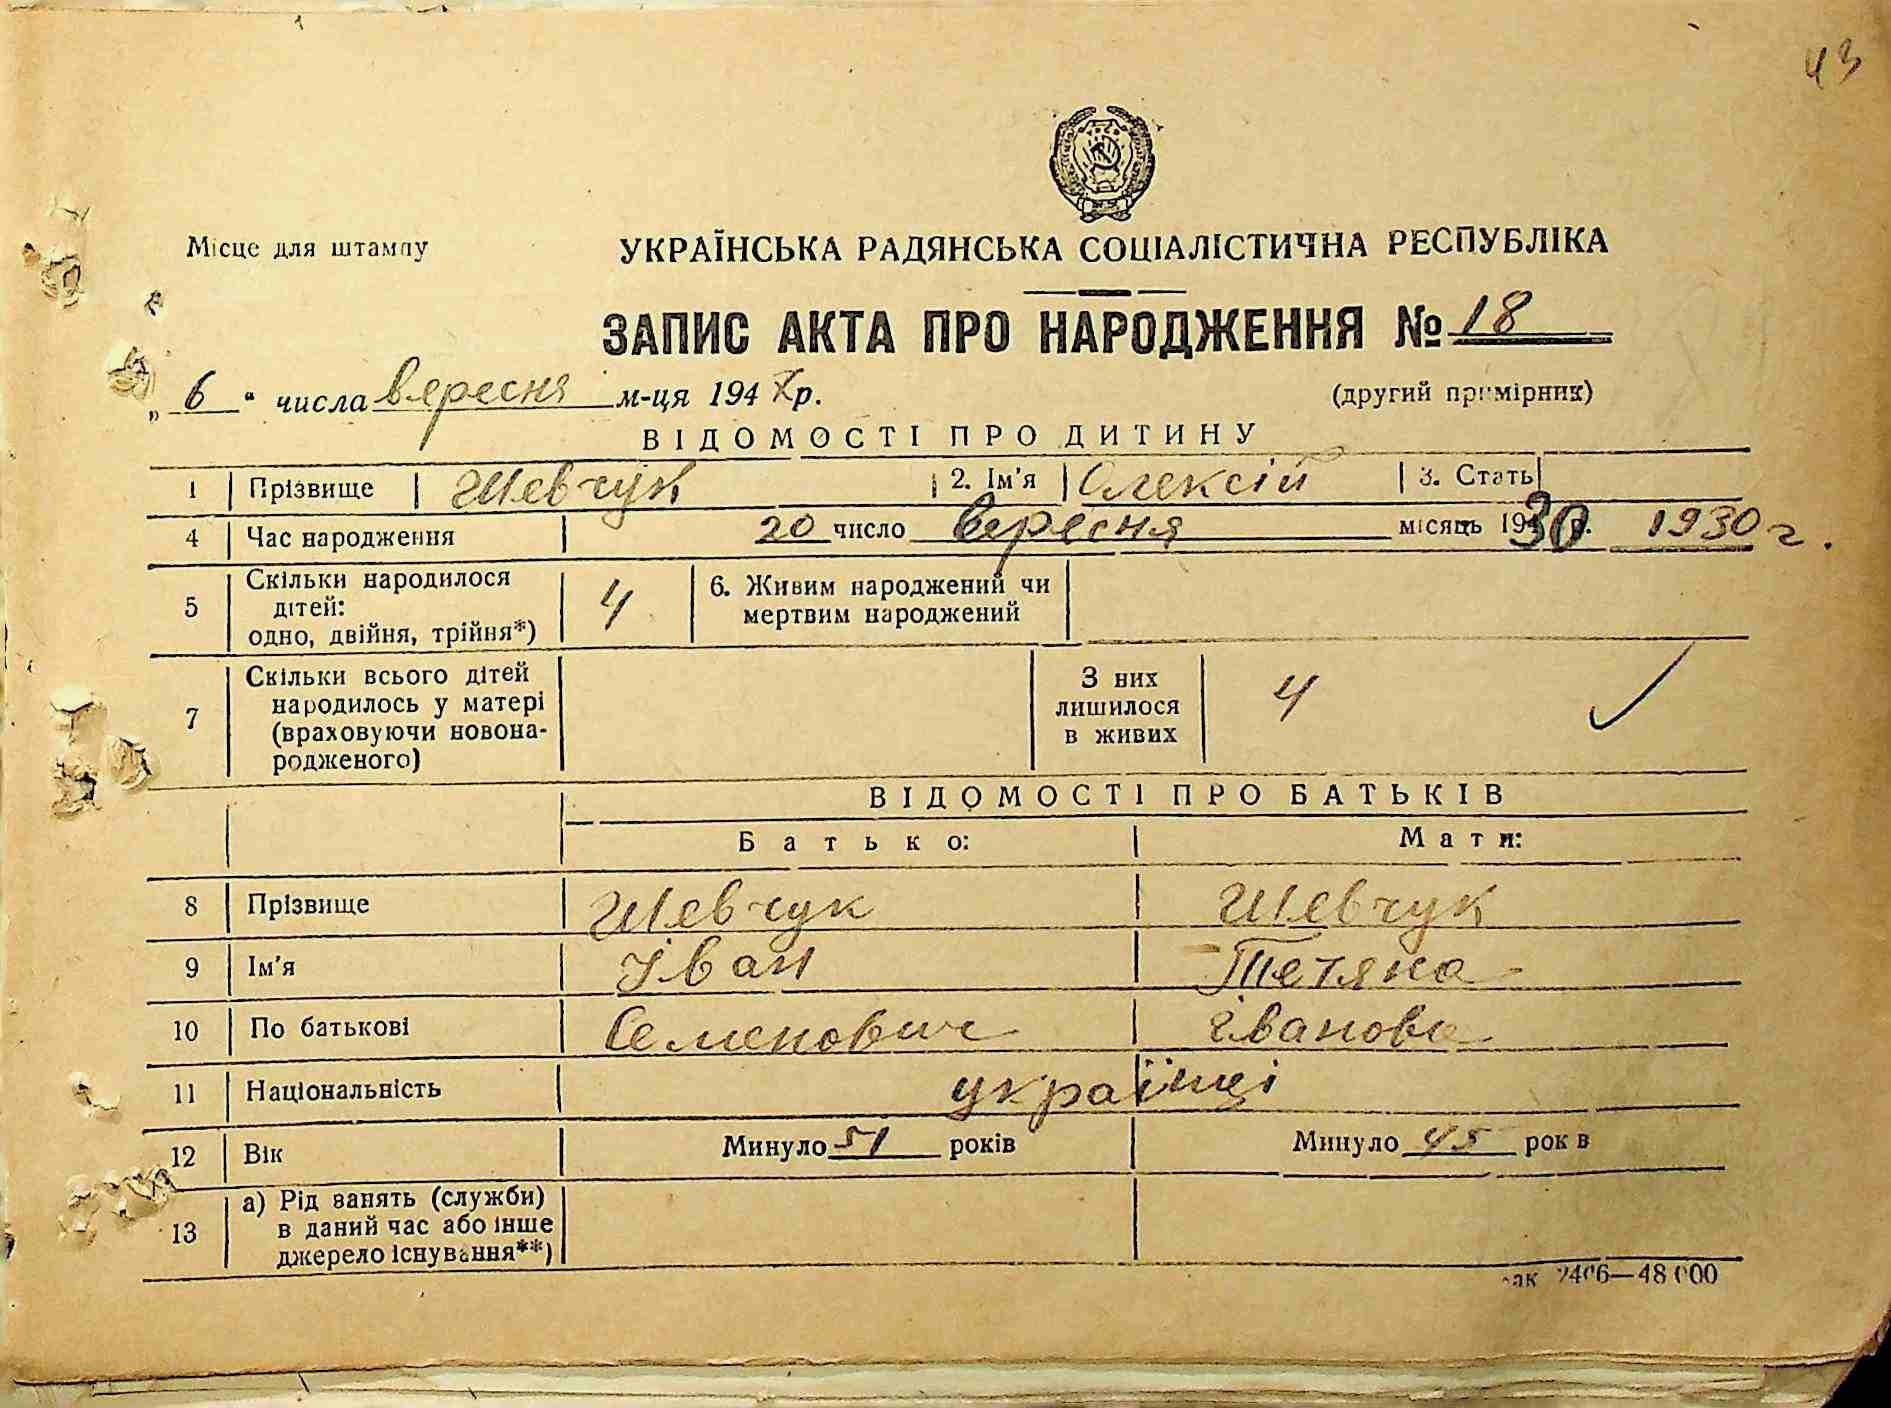 43
Місце для штампу
УКРАЇНСЬКА РАДЯНСЬКА СОЦІАЛІСТИЧНА РЕСПУБЛІКА
ЗАПИС АКТА ПРО НАРОДЖЕННЯ № 18
„ 6 “ числа вересня м-ця 194 р.
(другий примірник)
ВІДОМОСТІ ПРО ДИТИНУ
1 Прізвище Шевчук 2. Ім'я Олексій 3. Стать
4 Час народження 20 число вересня місяць 1930 р. 1930 г.
5 Скільки народилося дітей: одно, двійня, трійня*) 4 6. Живим народжений чи мертвим народжений
7 Скільки всього дітей народилось у матері (враховуючи новонародженого) З них лишилося в живих 4
ВІДОМОСТІ ПРО БАТЬКІВ
Батько: Мати:
8 Прізвище Шевчук Шевчук
9 Ім'я Іван Тетяна
10 По батькові Семенович Іванова
11 Національність українці
12 Вік Минуло 51 років Минуло 45 рок в
13 а) Рід занять (служби) в даний час або інше джерело існування**)
2406—48 000